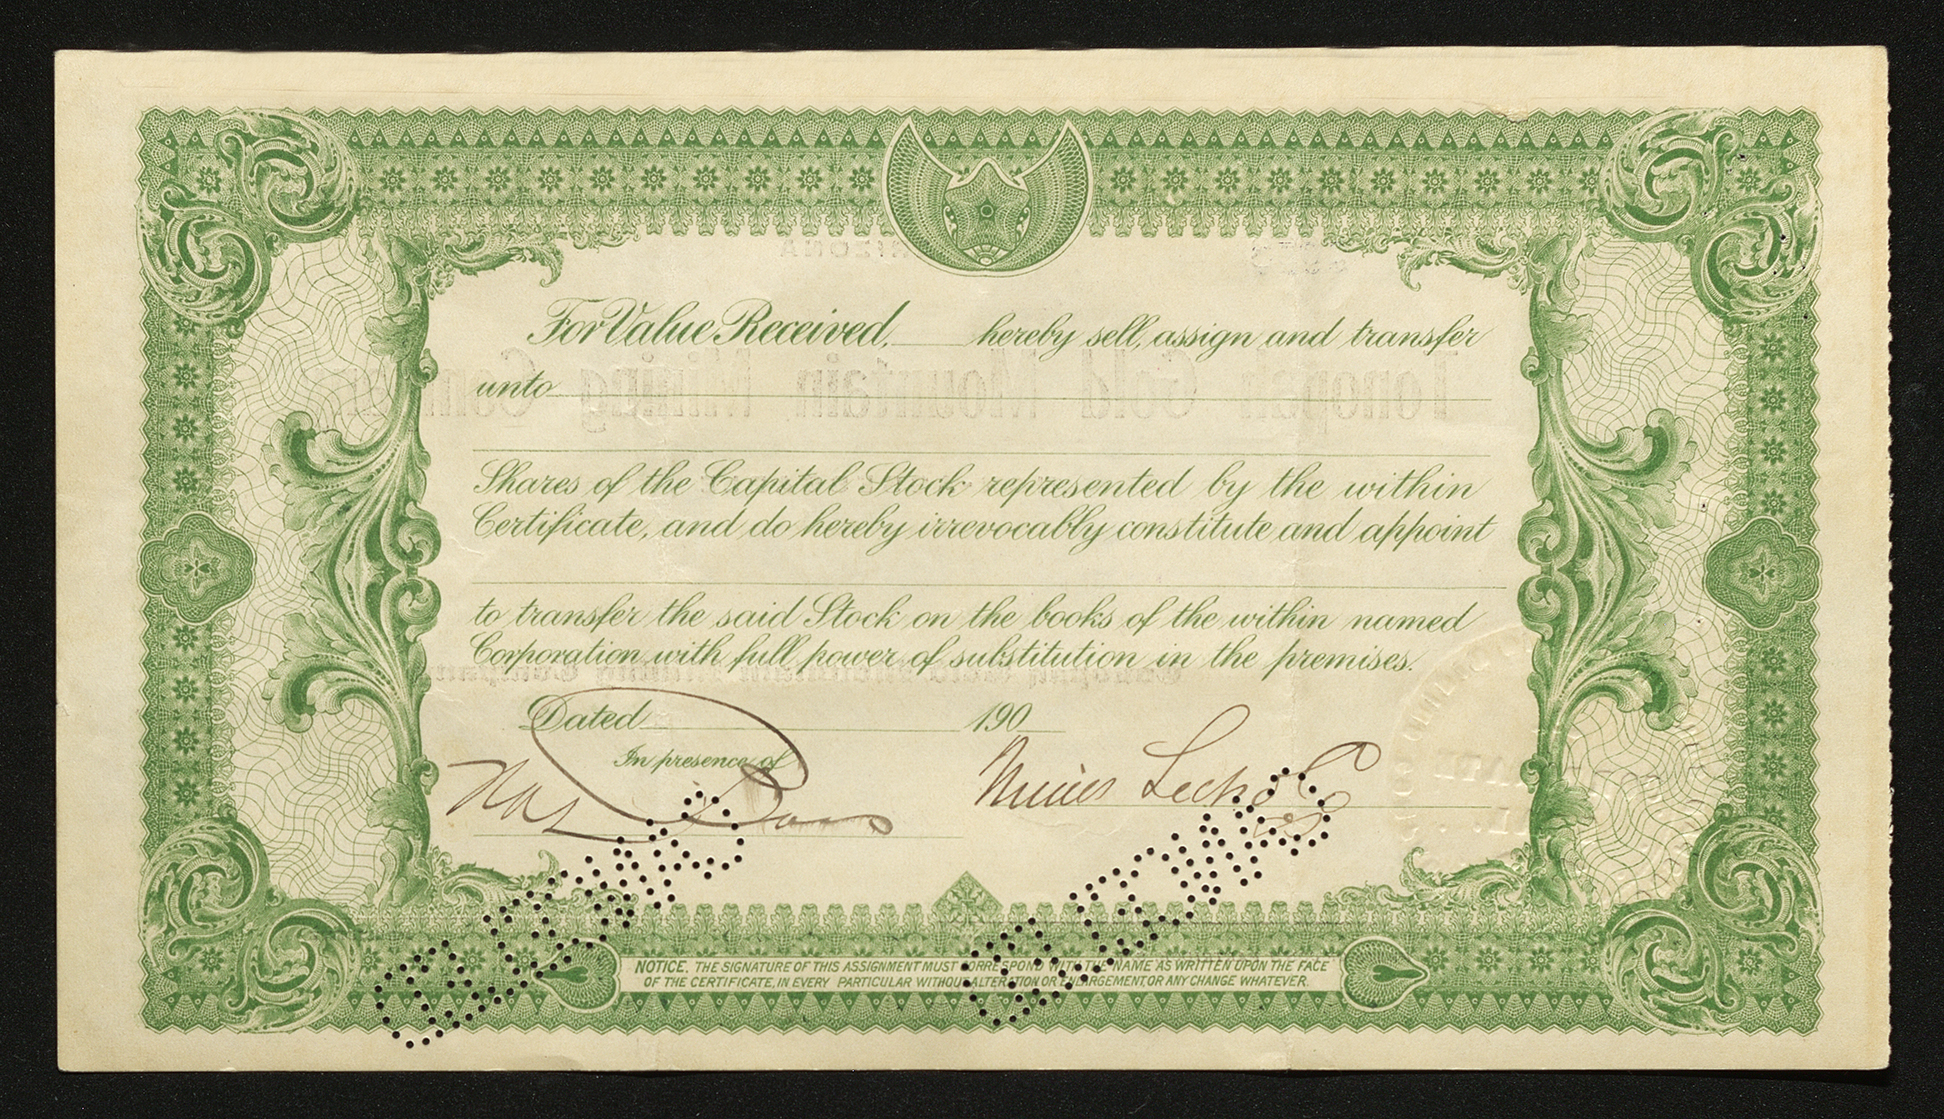 For Value Received, hereby sell, assign and transfer
unto
Shares of the Capital Stock represented by the within
Certificate, and do hereby irrevocably constitute and appoint
to transfer the said Stock on the books of the within named
Corporation with full power of substitution in the premises.
Dated 190
In presence of
NOTICE. THE SIGNATURE OF THIS ASSIGNMENT MUST CORRESPOND WITH THE NAME AS WRITTEN UPON THE FACE
OF THE CERTIFICATE, IN EVERY PARTICULAR WITHOUT ALTERATION OR ENLARGEMENT, OR ANY CHANGE WHATEVER.